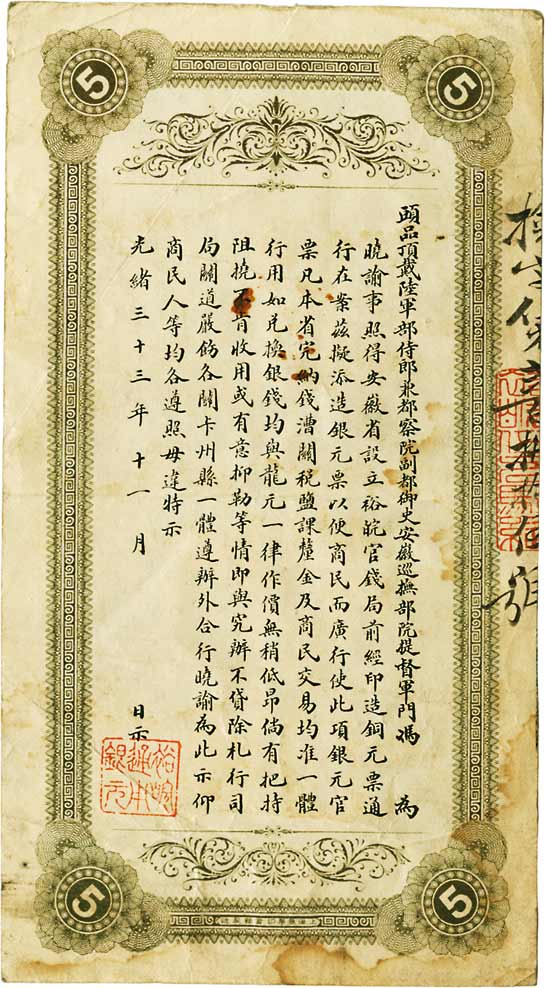 5 5
頭品頂戴陸軍部侍郎兼都察院副都御史安徽巡撫部院提督軍門馮 為
曉諭事照得安徽省設立裕皖官錢局前經印造銅元票通
行在案茲擬添造銀元票以便商民而廣行使此項銀元官
票凡本省完納錢漕關稅鹽課釐金及商民交易均准一體
行用如兌換銀錢均與龍元一律作價無稍低昂倘有把持
阻撓不肯收用或有意抑勒等情即與究辦不貸除札行司
局關道嚴飭各關卡州縣一體遵辦外合行曉諭為此示仰
商民人等均各遵照毋違特示
光緒三十三年十一月 日示
裕皖
通用
銀元
5 5